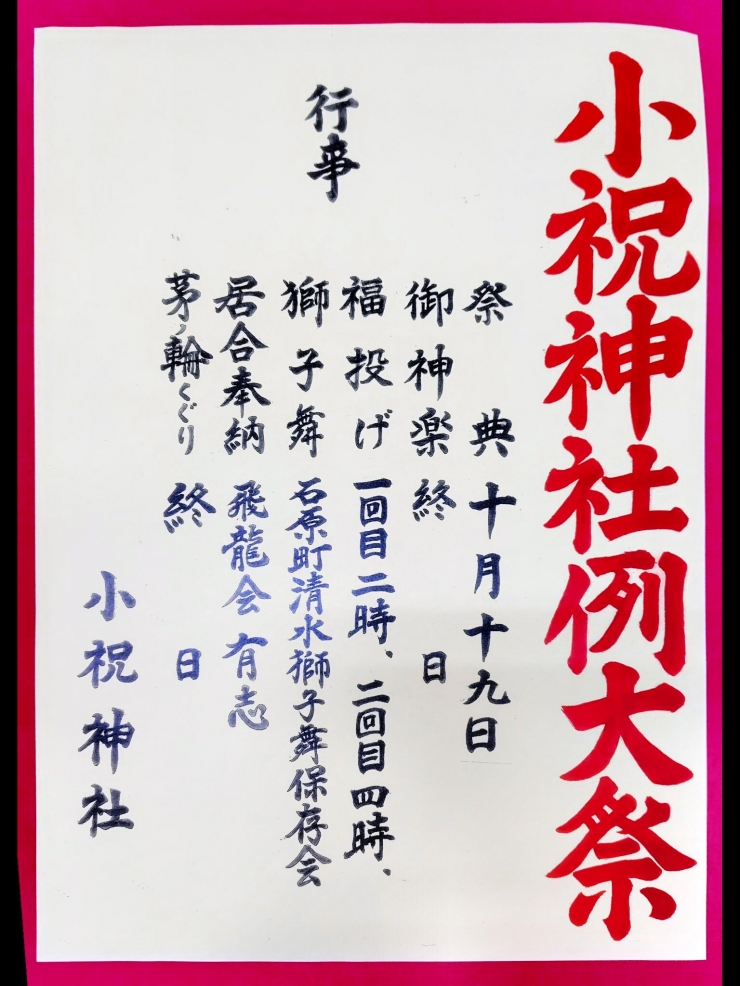 小祝神社例大祭
行事
祭典 十月十九日
御神楽 終日
福投げ 一回目二時、二回目四時、
獅子舞 石原町清水獅子舞保存会
居合奉納 飛龍会 有志
茅ノ輪くぐり 終日
小祝神社